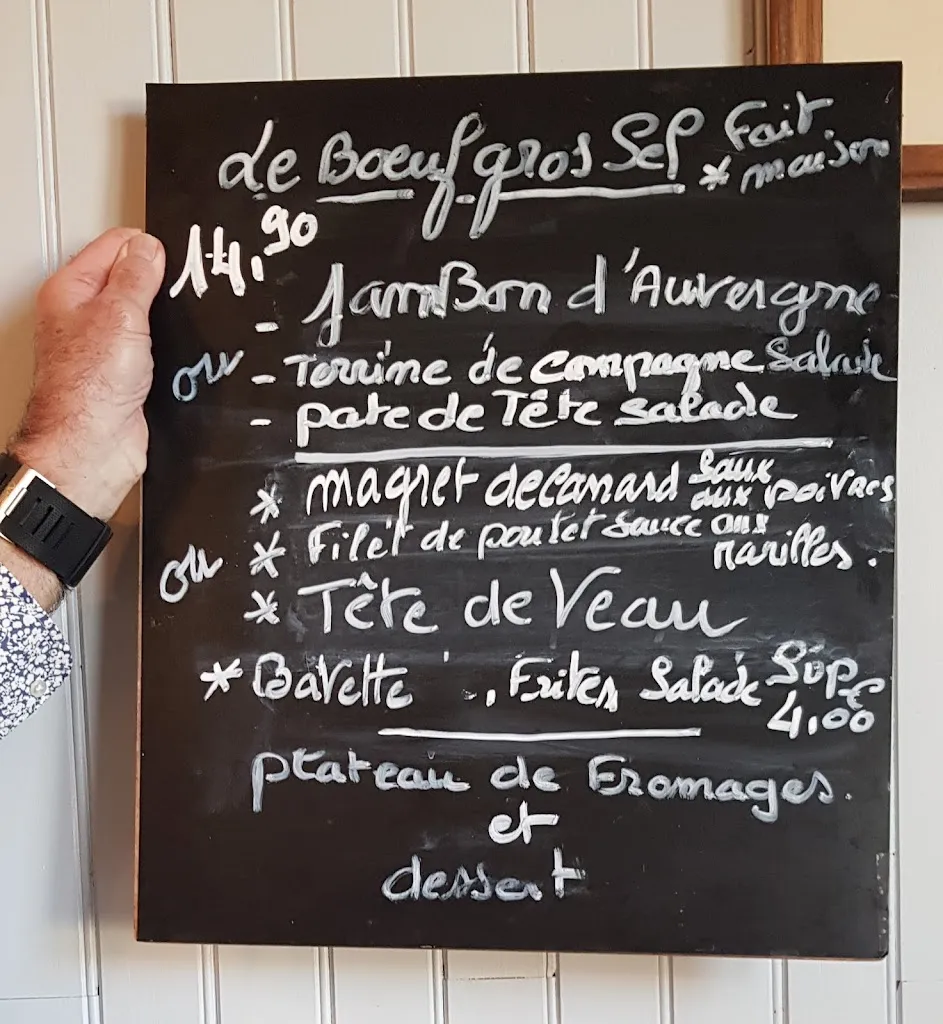 Le Boeuf gros Sel * Fait maison
14,90
- JamBon d'Auvergne
ou - Terrine de campagne Salade
- pate de Tête salade
* magret de canard Saux aux poivres
ou * Filet de poulet sauce aux narilles.
* Tête de Veau
* Bavette , Frites Salade Sup 4,00€
plateau de Fromages.
et
dessert